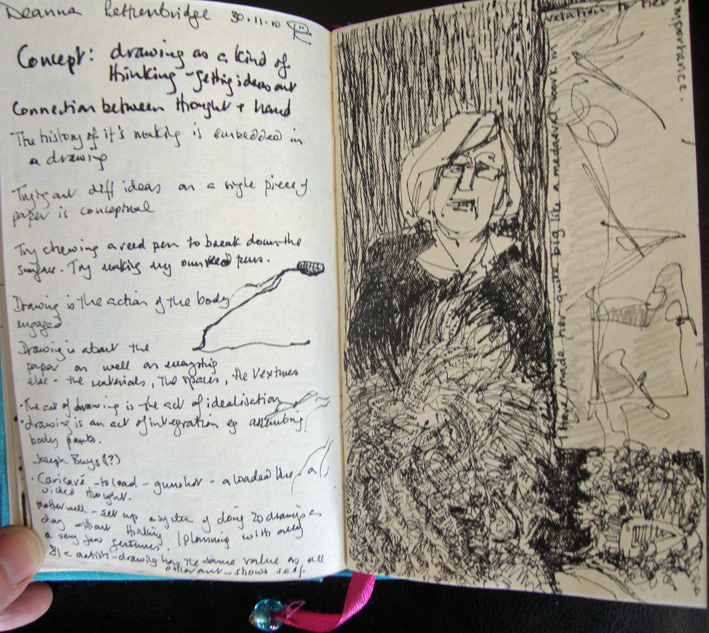 Deanna Petherbridge 30.11.10
Concept: drawing as a kind of
thinking - getting ideas out
Connection between thought & hand
The history of it's making is embedded in
a drawing
Trying out diff ideas on a single piece of
paper is conceptual
Try chewing a reed pen to break down the
surface. Try making my own reed pens.
Drawing is the action of the body
engaged
Drawing is about the
paper as well as everything
else - the materials, the spaces, the textures
• The act of drawing is the act of idealisation
• drawing is an act of integration eg
body parts.
Joseph Buys (?)
• Caricare - to load - gunshot - a loaded line - a
thought.
- set up a system of doing 20 drawings a
day without thinking / planning with only
a very few
artist - drawing has the same value as all
other art - shows self
I have made her quite big like a medaeval work in
relation to her
importance.